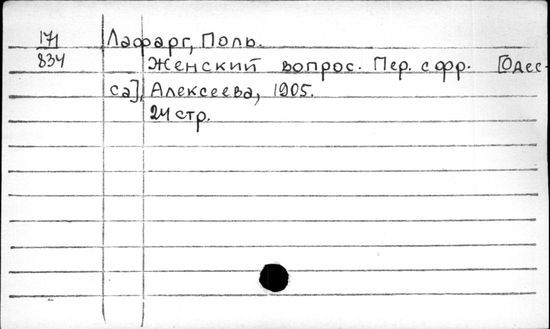 171 Лафарг, Поль.
834 Женский вопрос. Пер. с фр. [Одес-
са], Алексеева, 1905.
24 стр.